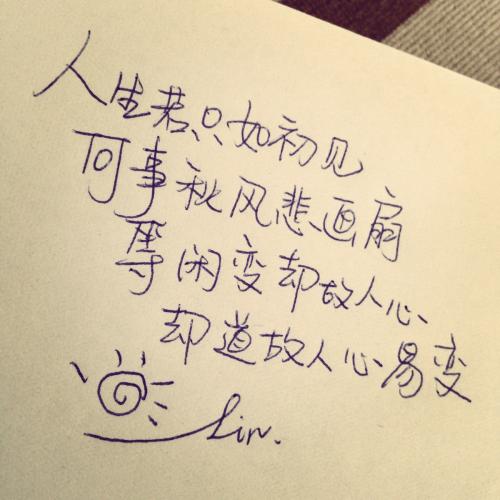 人生若只如初见
何事秋风悲画扇
等闲变却故人心
却道故人心易变
Lin.